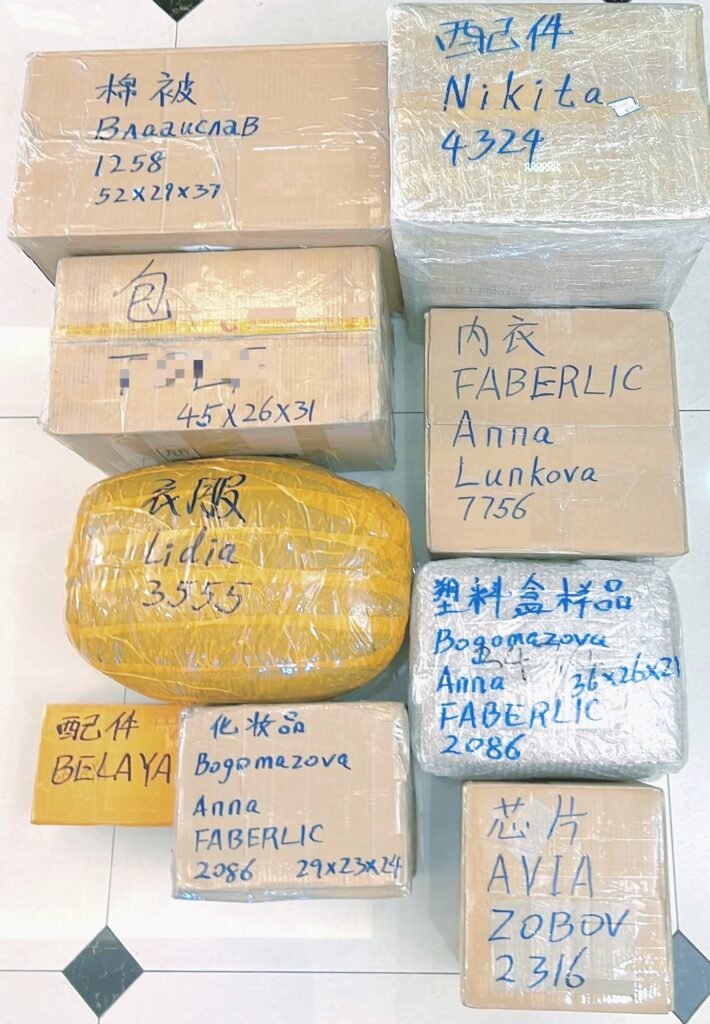 棉被
Владислав
1258
52×29×37
配己件
Nikita
4324
包
45×26×31
内衣
FABERLIC
Anna
Lunkova
7756
衣服
Lidia
3555
塑料盒样品
Bogomazova
Anna 36×26×21
FABERLIC
2086
配件
BELAYA
化妆品
Bogomazova
Anna
FABERLIC
2086 29×23×24
芯片
AVIA
ZOBOV
2316